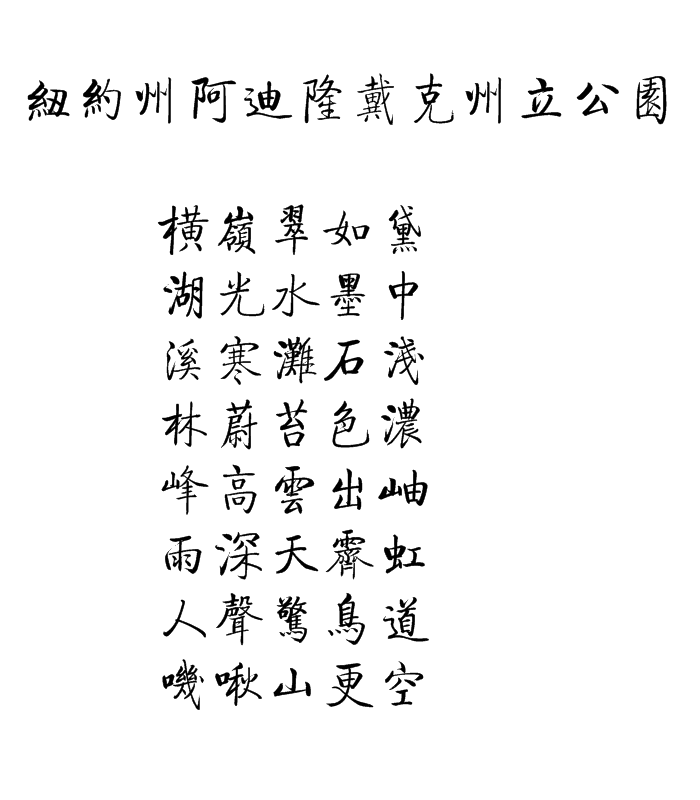 紐約州阿迪隆戴克州立公園
橫嶺翠如黛
湖光水墨中
溪寒灘石淺
林蔚苔色濃
峰高雲出岫
雨深天霽虹
人聲驚鳥道
嘰啾山更空